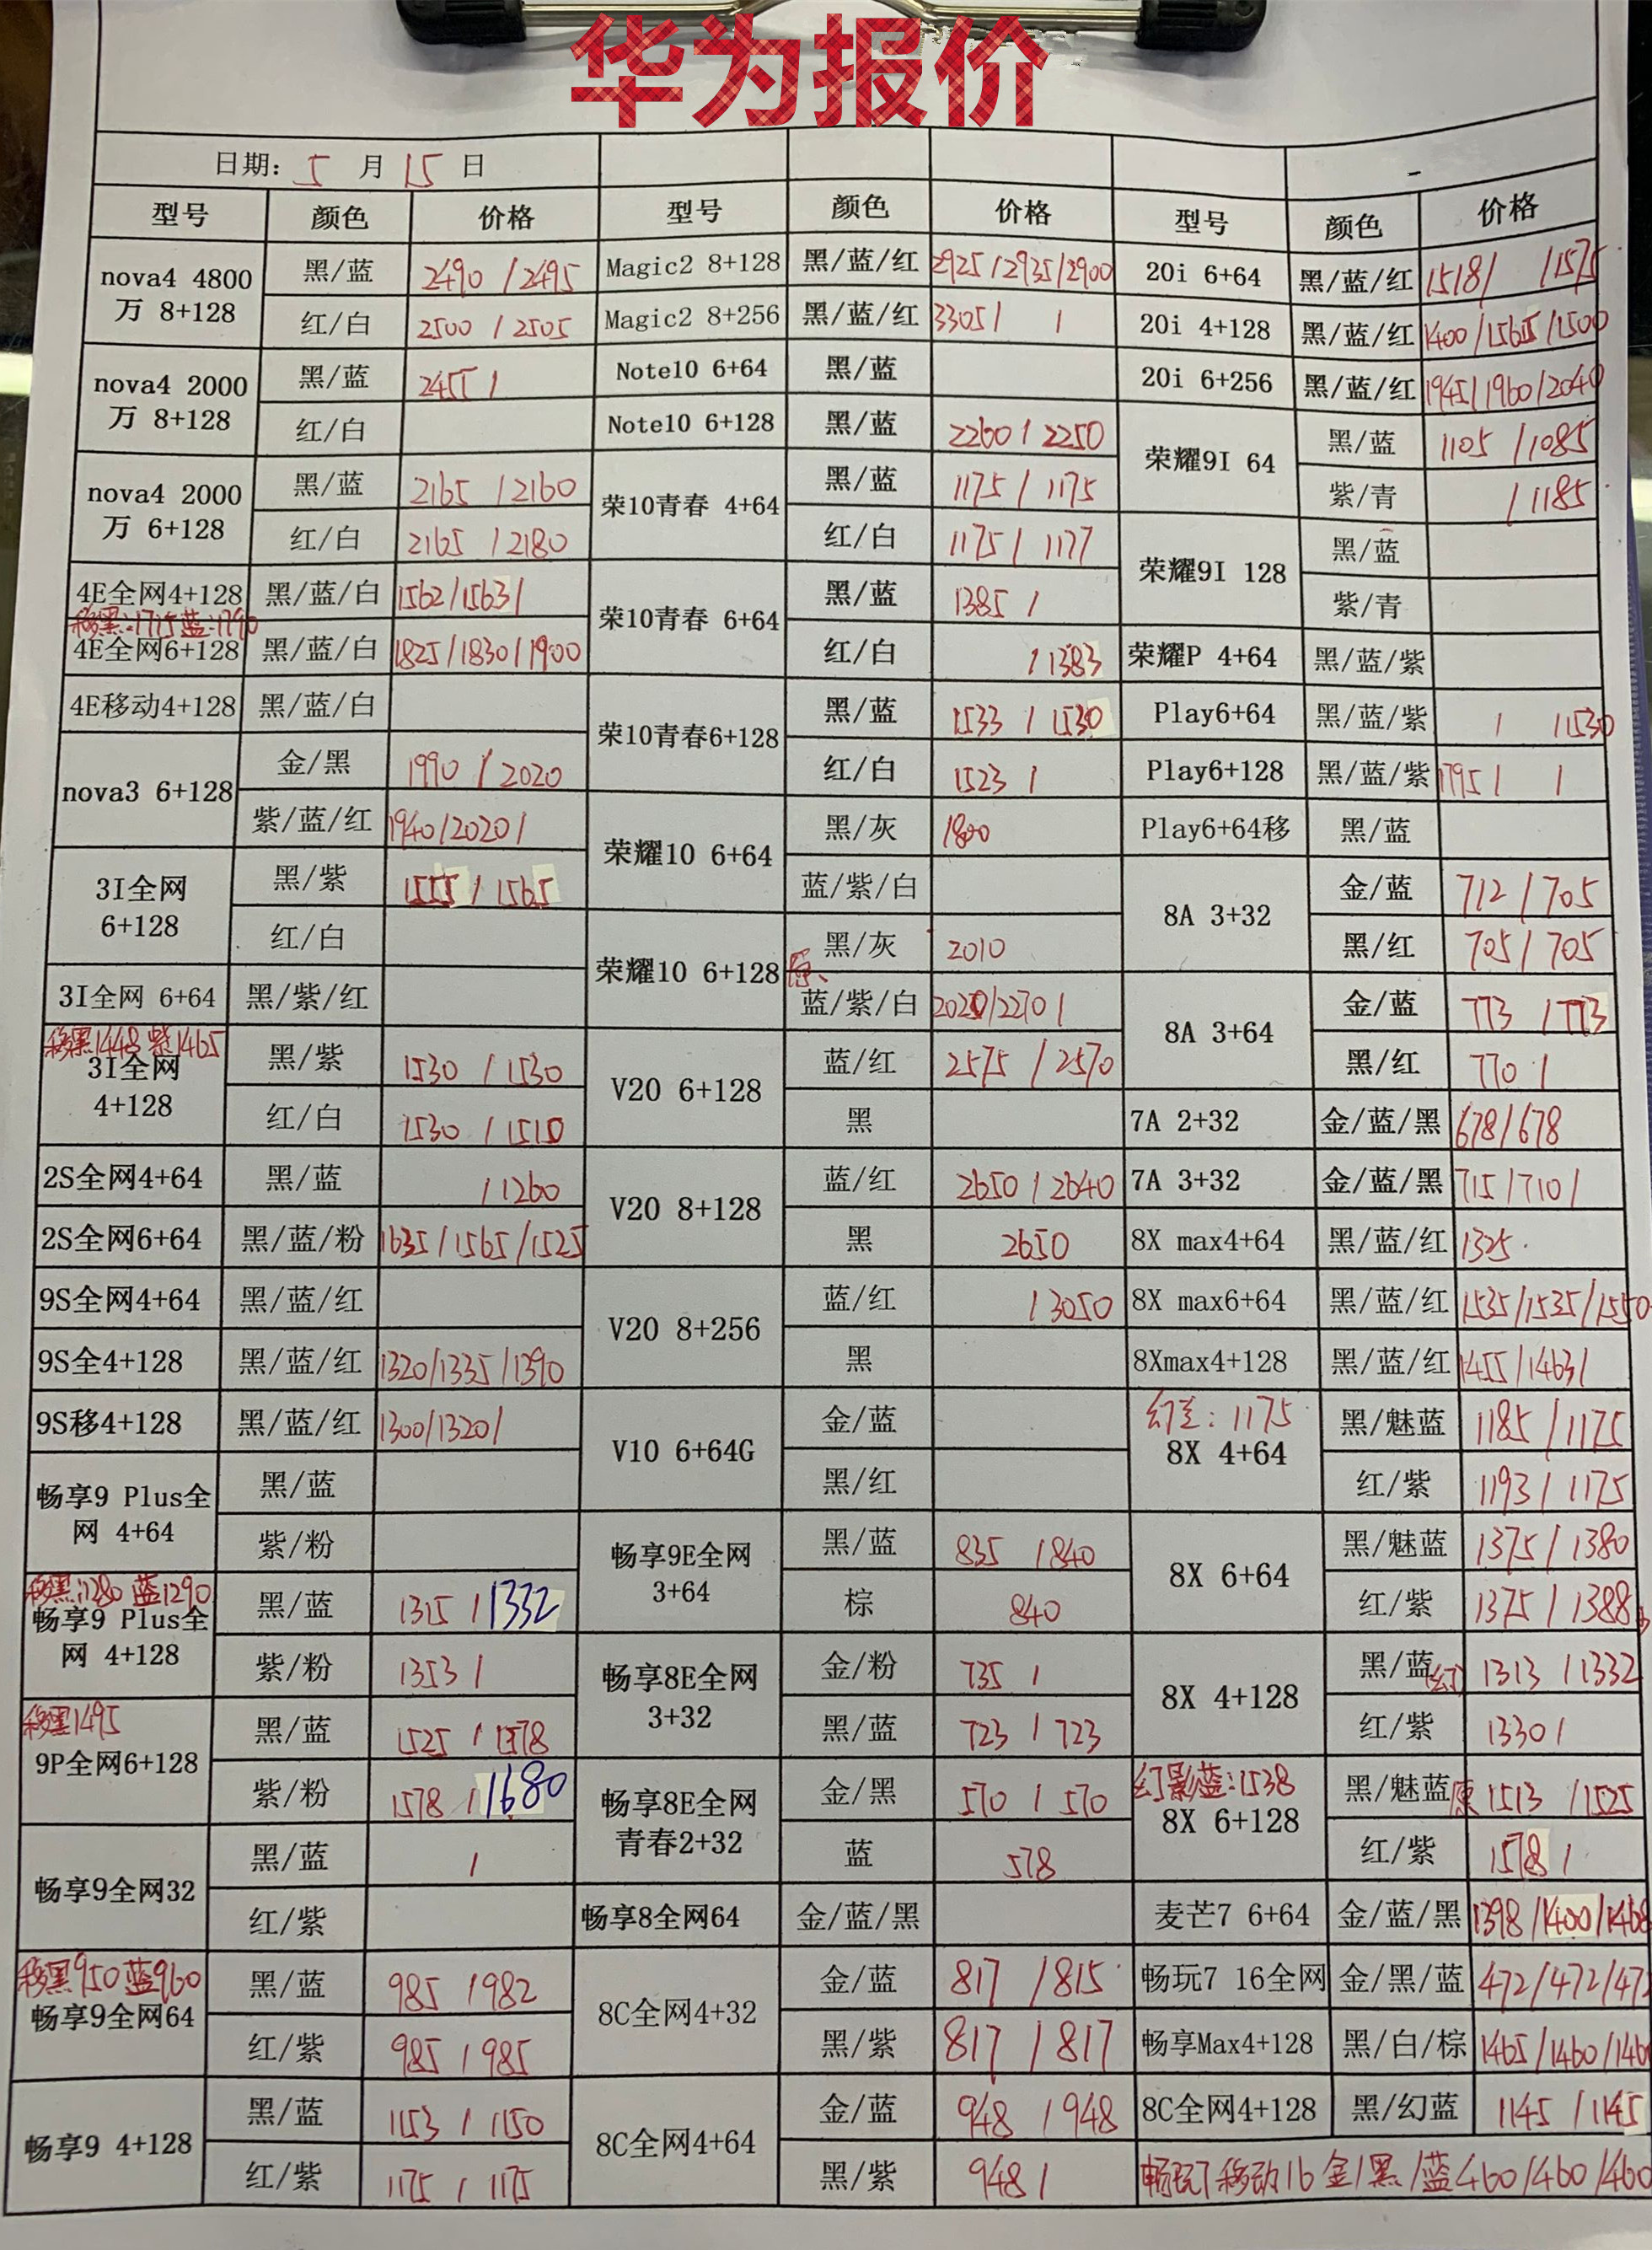 华为报价
日期: 5 月 15 日
型号 颜色 价格 型号 颜色 价格 型号 颜色 价格
nova4 4800万 8+128 黑/蓝 2490 / 2495 Magic2 8+128 黑/蓝/红 2925 / 2935 / 2900 20i 6+64 黑/蓝/红 1518 / / 1575
红/白 2500 / 2505 Magic2 8+256 黑/蓝/红 3305 / / 20i 4+128 黑/蓝/红 1400 / 1565 / 1500
nova4 2000万 8+128 黑/蓝 2455 / Note10 6+64 黑/蓝 20i 6+256 黑/蓝/红 1945 / 1960 / 2040
红/白 Note10 6+128 黑/蓝 2260 / 2250 荣耀9I 64 黑/蓝 1105 / 1085
nova4 2000万 6+128 黑/蓝 2165 / 2160 荣10青春 4+64 黑/蓝 1175 / 1175 紫/青 / 1185
红/白 2165 / 2180 红/白 1175 / 1177 荣耀9I 128 黑/蓝
4E全网4+128 黑/蓝/白 1562 / 1563 / 荣10青春 6+64 黑/蓝 1385 / 紫/青
移黑:1715 蓝:1790
4E全网6+128 黑/蓝/白 1825 / 1830 / 1900 红/白 / 1383 荣耀P 4+64 黑/蓝/紫
4E移动4+128 黑/蓝/白 荣10青春6+128 黑/蓝 1533 / 1530 Play6+64 黑/蓝/紫 / / 1530
nova3 6+128 金/黑 1990 / 2020 红/白 1523 / Play6+128 黑/蓝/紫 1795 / /
紫/蓝/红 1940 / 2020 / 荣耀10 6+64 黑/灰 1800 Play6+64移 黑/蓝
3I全网 6+128 黑/紫 1555 / 1565 蓝/紫/白 8A 3+32 金/蓝 712 / 705
红/白 荣耀10 6+128 黑/灰 2010 黑/红 705 / 705
3I全网 6+64 黑/紫/红 原、蓝/紫/白 2020 / 2270 / 8A 3+64 金/蓝 773 / 773
移黑1448 紫1465
3I全网 4+128 黑/紫 1530 / 1530 V20 6+128 蓝/红 2575 / 2570 黑/红 770 /
红/白 1530 / 1510 黑 7A 2+32 金/蓝/黑 678 / 678
2S全网4+64 黑/蓝 / 1260 V20 8+128 蓝/红 2650 / 2640 7A 3+32 金/蓝/黑 715 / 710 /
2S全网6+64 黑/蓝/粉 1635 / 1565 / 1525 黑 2650 8X max4+64 黑/蓝/红 1325
9S全网4+64 黑/蓝/红 V20 8+256 蓝/红 / 3050 8X max6+64 黑/蓝/红 1535 / 1535 / 1550
9S全4+128 黑/蓝/红 1320 / 1335 / 1390 黑 8Xmax4+128 黑/蓝/红 1455 / 1463 /
9S移4+128 黑/蓝/红 1300 / 1320 / V10 6+64G 金/蓝 幻兰: 1175 8X 4+64 黑/魅蓝 1185 / 1175
畅享9 Plus全网 4+64 黑/蓝 黑/红 红/紫 1193 / 1175
紫/粉 畅享9E全网 3+64 黑/蓝 835 / 840 8X 6+64 黑/魅蓝 1375 / 1380
移黑:1280 蓝1290
畅享9 Plus全网 4+128 黑/蓝 1315 / 1332 棕 840 红/紫 1375 / 1388
紫/粉 1353 / 畅享8E全网 3+32 金/粉 735 / 8X 4+128 黑/蓝(幻) 1313 / 1332
移黑1495
9P全网6+128 黑/蓝 1525 / 1578 黑/蓝 723 / 723 红/紫 1330 /
紫/粉 1578 / 1680 畅享8E全网 青春2+32 金/黑 570 / 570 幻影蓝:1538 8X 6+128 黑/魅蓝 原 1513 / 1525
畅享9全网32 黑/蓝 / 蓝 578 红/紫 1578 /
红/紫 畅享8全网64 金/蓝/黑 麦芒7 6+64 金/蓝/黑 1398 / 1400 / 1468
移黑950 蓝960
畅享9全网64 黑/蓝 985 / 982 8C全网4+32 金/蓝 817 / 815 畅玩7 16全网 金/黑/蓝 472 / 472 / 472
红/紫 985 / 985 黑/紫 817 / 817 畅享Max4+128 黑/白/棕 1465 / 1460 / 146
畅享9 4+128 黑/蓝 1153 / 1150 8C全网4+64 金/蓝 948 / 948 8C全网4+128 黑/幻蓝 1145 / 1145
红/紫 1175 / 1175 黑/紫 948 / 畅玩7移动16 金/黑/蓝 460 / 460 / 460